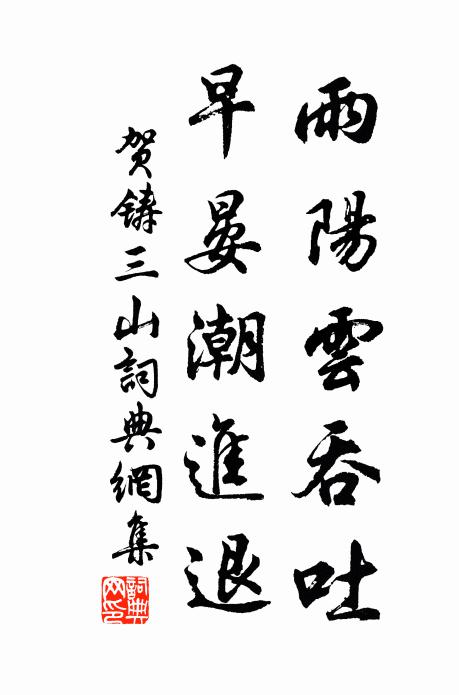 雨陽雲吞吐
早晏潮進退
贺鑄三山詞典網集
詞典網印